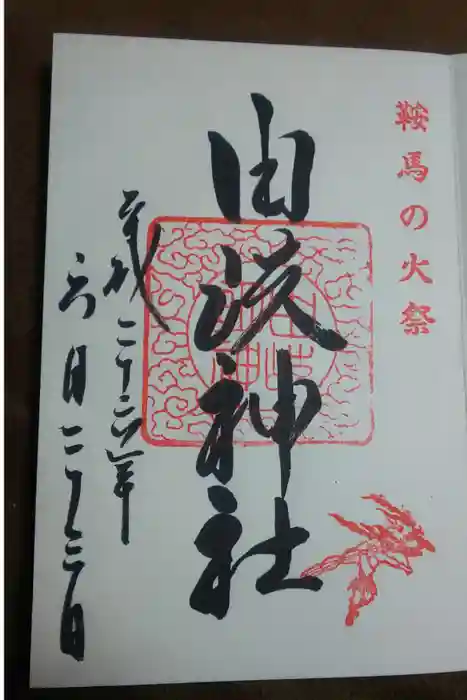 鞍馬の火祭
由岐神社
平成二十六年
六月二十三日